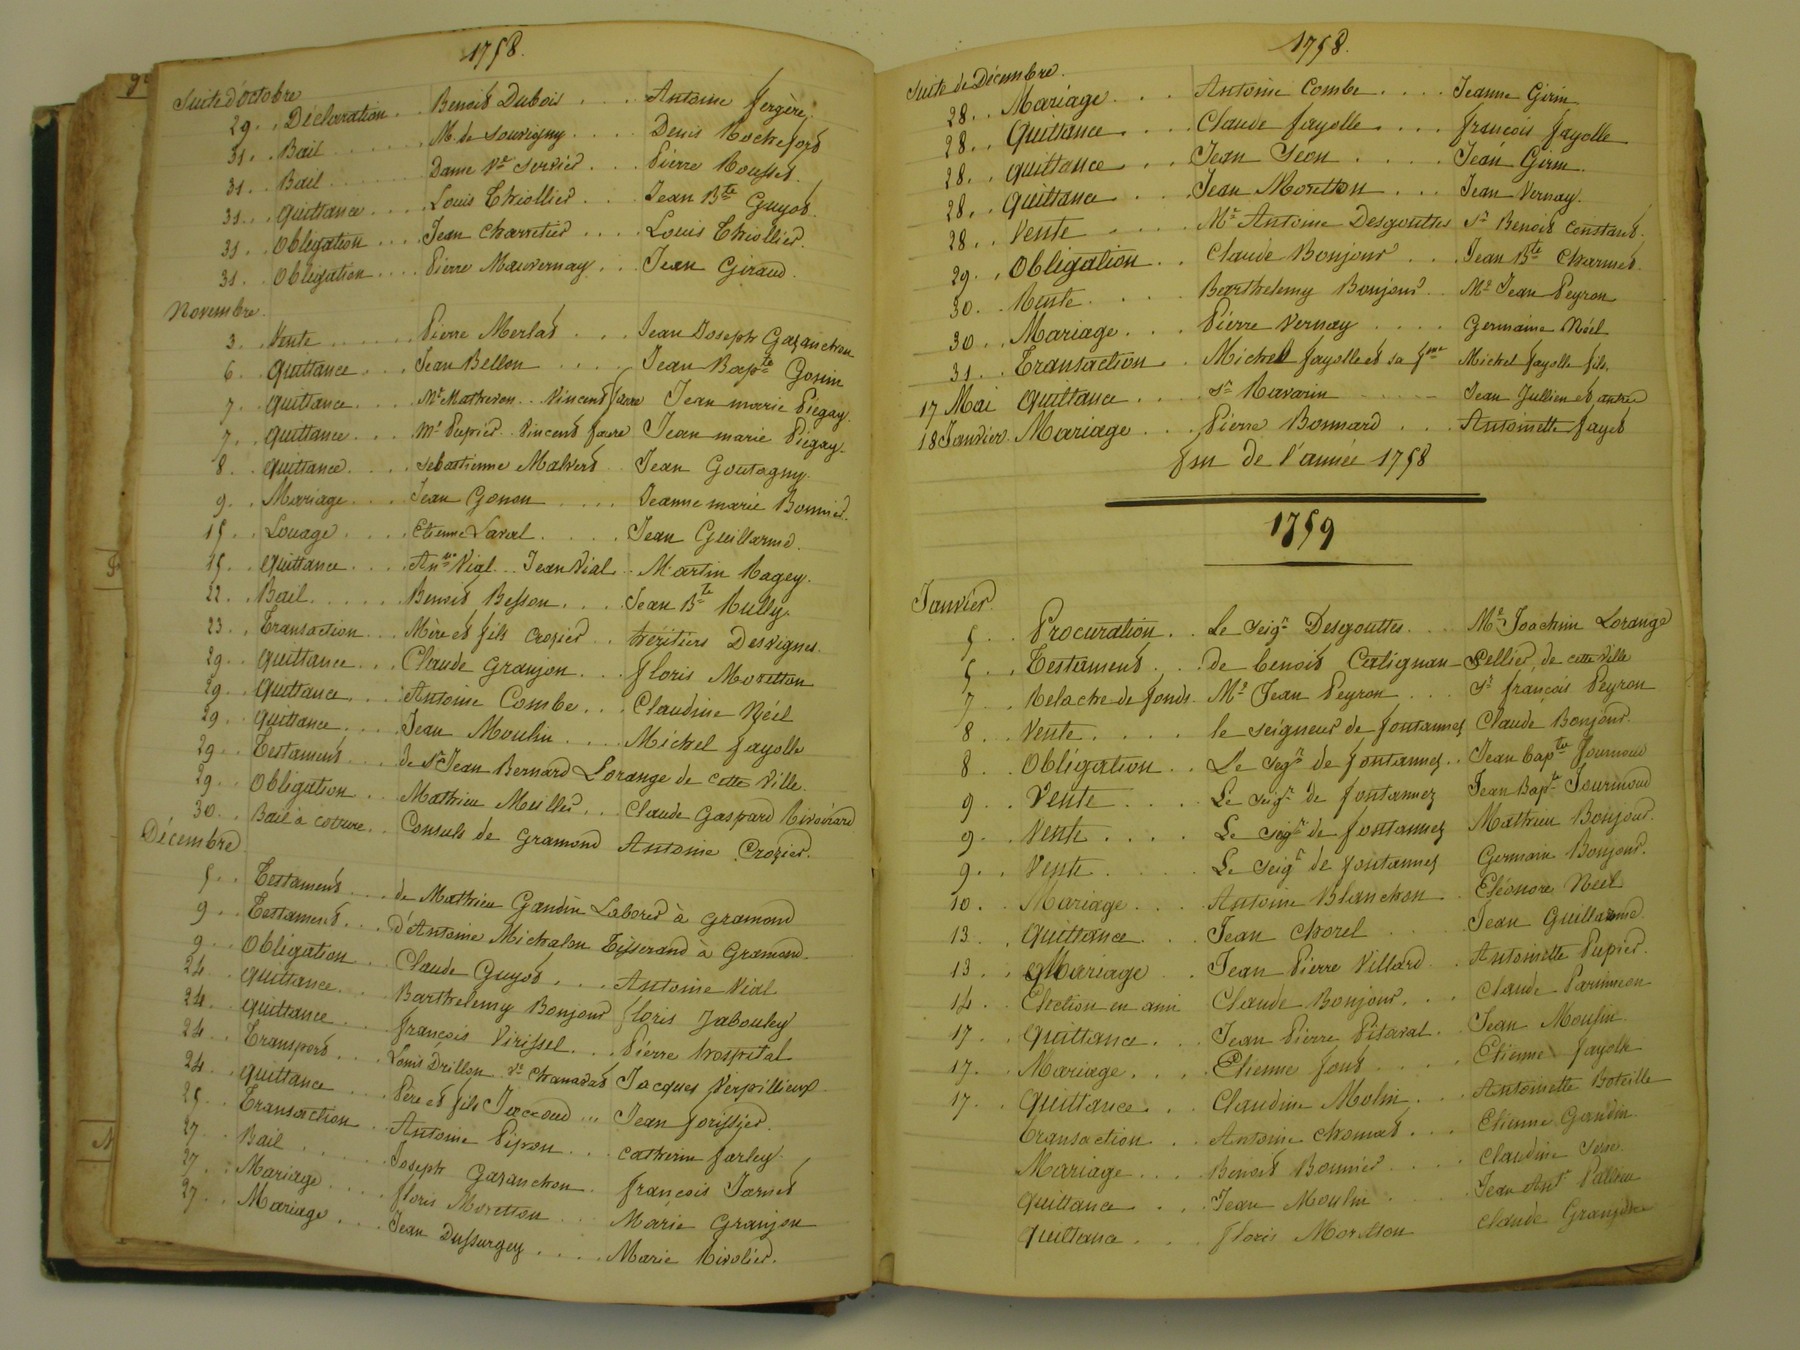 1758.
Suite d'octobre
29. . Déclaration . . Benoit Dubois . . . . Antoine fergère.
31. . Bail . . . . . . M. de Souvigny . . . . Denis Rochefort
31. . Bail . . . . . . Dame Ve Servier . . . Pierre Rousset.
31. . quittance . . . . Louis Thiollier . . . Jean Bte Guyot.
31. . Obligation . . . . Jean Charretier . . . . Louis Thiollier.
31. . Obligation . . . . Pierre Mauvernay . . . Jean Giraud.
Novembre.
3. . Vente . . . . . . Pierre Merlat . . . Jean Joseph Gazanchon
6. . quittance . . . . Jean Bellon . . . . . Jean Bapte Gonin
7. . quittance . . . . Mr Matheron . . Vincent faure Jean marie Piégay.
7. . quittance . . . Mr Pupier . Vincent faure Jean marie Piégay.
8. . quittance . . . . Sébastienne Malvert . . Jean Goutagny.
9. . Mariage . . . . Jean Gonon . . . . . Jeanne marie Bonnier.
15. . Louage . . . . . Etienne Laval . . . . . Jean Guillarme.
15. . quittance . . . . Anne Vial . . Jean Vial . . Martin Ragey.
22. . Bail . . . . . . Benoit Besson . . . . Jean Bte Rully.
23. . Transaction . . . Mère et fils Crozier . . héritiers Desvignes.
29. . quittance . . . Claude Granjon . . . floris Moretton
29. . quittance . . . Antoine Combe . . . Claudine Néel
29. . quittance . . . . Jean Moulin . . . . Michel fayolle
29. . Testament . . . . de Sr Jean Bernard Lorange de cette Ville.
29. . Obligation . . . Mathieu Meiller . . . Claude Gaspard Rivoirard
30. . Bail à coture . . Consuls de Gramond Antoine Crozier.
Décembre
5. . Testament . . . . de Mathieu Gandin Laborer à gramond
9. . Testament . . . d'Antoine Michalon Tisserand à Gramond.
9. . Obligation . . . Claude Guyot . . . Antoine Vial
24. . quittance . . . Barthelemy Bonjour floris Jabouley
24. . quittance . . . françois Virissel . . . Pierre hospital
24. . Transport . . . Louis Drillon . Sr Chanavat Jacques Verpillieux
24. . quittance . . . . Père et fils Jaccoud . . Jean forissier.
25. . Transaction . . Antoine Pipon . . . Catherine farley.
27. . Bail . . . . . . Joseph Gazanchon . . françois Jarnet
27. . Mariage . . . . floris Moretton . . . Marie Granjon
27. . Mariage . . . Jean Dussurgey . . . . Marie Rivolier.
1758.
Suite de Décembre.
28. . Mariage . . . Antoine Combe . . . . Jeanne Girin
28. . Quittance . . . . Claude fayolle . . . . françois fayolle
28. . quittance . . . Jean Séon . . . . . Jean Girin.
28. . quittance . . . Jean Moretton . . . Jean Vernay.
28. . Vente . . . . . Mr Antoine Desgouttes Sr Benoit Constant.
29. . Obligation . . Claude Bonjour . . . Jean Bte Charmet.
30. . Vente . . . . Barthelemy Bonjour . . Mr Jean Peyron
30. . Mariage . . . Pierre Vernay . . . . Germaine Néel
31. . Transaction . . Michel fayolle et sa fme Michel fayolle fils.
17 Mai quittance . . . . Sr Ravarin . . . . . Jean Jullien et autres
18 Janvier. Mariage . . . Pierre Bonnard . . . Antoinette fayet
fin de l'année 1758
1759
Janvier.
5. . Procuration . . Le Seigr Desgouttes . . . Mr Joachim Lorange
5. . Testament . . . de benoit Catignan Sellier de cette Ville
7. . Relache de fonds. Mr Jean Peyron . . . Sr françois Peyron
8. . Vente . . . . . le Seigneur de fontannes Claude Bonjour.
8. . Obligation . . Le Segr de fontannes . . Jean bapte Journoud
9. . Vente . . . . Le Seigr de fontannes Jean Bapte Journoud
9. . Vente . . . . Le Seigr de fontannes Mathieu Bonjour.
9. . Vente . . . . Le Seigr de fontannes Germain Bonjour.
10. . Mariage . . . Antoine Blanchon . . Eléonore Néel
13. . quittance . . Jean Chorel . . . . Jean Guillarme.
13. . Mariage . . Jean Pierre Villard . . Antoinette Pupier.
14. . Election en ami Claude Bonjour. . . . Claude Parinneon
17. . quittance . . . Jean Pierre Pitaval . Jean Moulin.
17. . Mariage . . . . Etienne font . . . . Etienne fayolle
17. . quittance . . . Claudine Molin . . . Antoinette Boteille
Transaction . . Antoine Thomas . . . Etienne Gandin.
Mariage . . . . Benoit Bonnier . . . . Claudine
quittance . . . Jean Moulin . . . . Jean Ant
quittance . . . . floris Moretton Claude Granjon